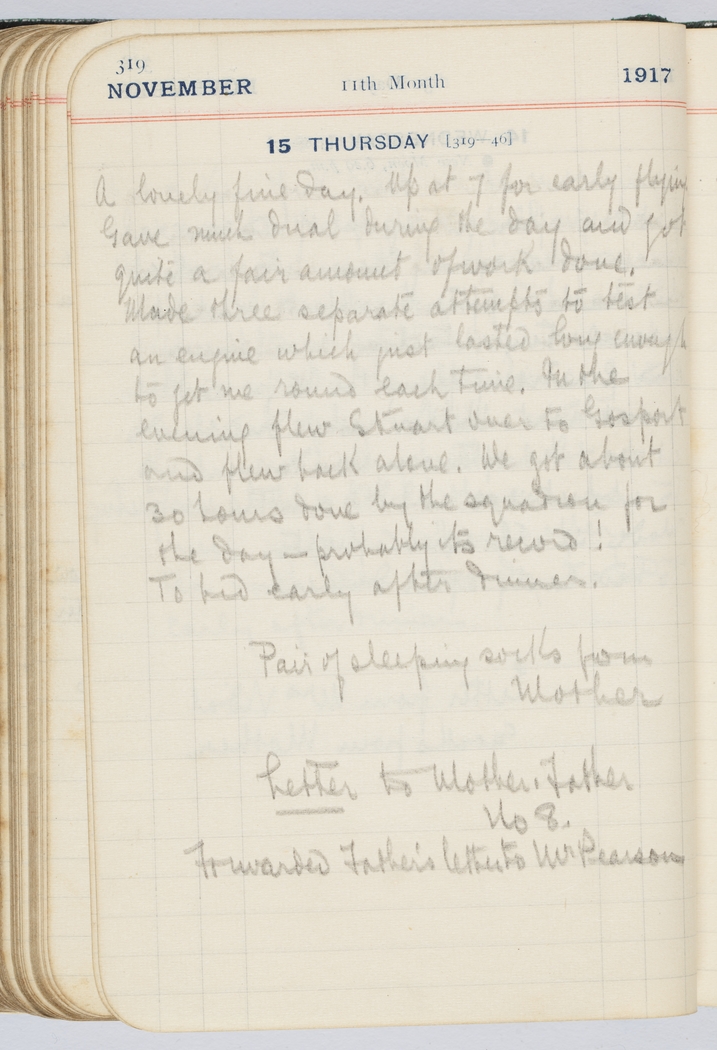 319
NOVEMBER 11th Month 1917
15 THURSDAY [319—46]
A lovely fine day. Up at 7 for early flying
Gave much dual during the day and got
quite a fair amount of work done.
Made three separate attempts to test
an engine which just lasted long enough
to get me round each time. In the
evening flew Stuart over to Gosport
and flew back alone. We got about
30 hours done by the squadron for
the day – probably its record!
To bed early after dinner.
Pair of sleeping socks from
Mother
Letter to Mother. Father
No 8.
Forwarded Father's letter to Mr Pearson